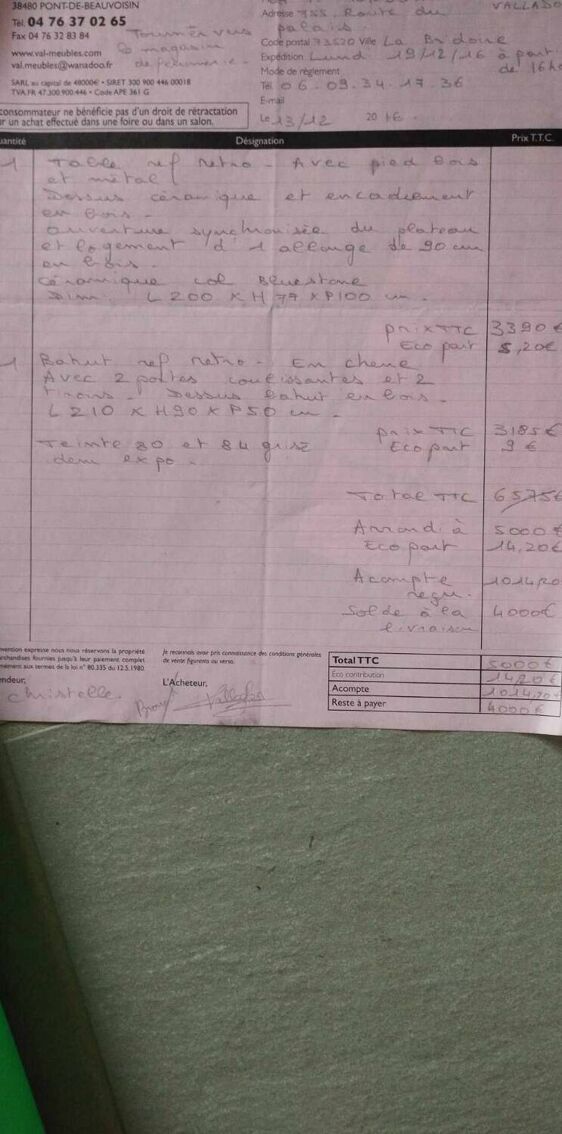 38480 PONT-DE-BEAUVOISIN
Tél. 04 76 37 02 65
Fax 04 76 32 83 84
www.val-meubles.com
val.meubles@wanadoo.fr
SARL au capital de 48000€ • SIRET 300 900 446 00018
TVA FR 47 300 900 446 • Code APE 361 G
Tourner vers
le magasin
de
VALLADO
Adresse 755 Route du
palais
Code postal 73520 Ville La Bridoire
Expédition Lundi 19/12/16 à partir
de 16h
Mode de règlement
Tél. 06.09.34.17.36
E-mail
Le 13/12 2016.
consommateur ne bénéficie pas d'un droit de rétractation
ur un achat effectué dans une foire ou dans un salon.
uantité Désignation Prix T.T.C.
1 Table ref Retro - Avec pied bois
et métal
Dessus céramique et encadrement
en bois.
ouverture synchronisée du plateau
et logement d'1 allonge de 90 cm
en bois.
Céramique col Bluestone
Dim. L200 x H77 x P100 cm.
prix TTC 3390€
Eco part 5,20€
1 Bahut ref Retro - En chene
Avec 2 portes coulissantes et 2
tiroirs. Dessus bahut en bois.
L210 x H90 x P50 cm.
prix TTC 3185€
Eco part 9€
Teinte 80 et 84 grisé
dem expo.
Total TTC 6575€
Arrondi à 5000€
Eco part 14,20€
Acompte 1014,20
reçu.
Solde à la 4000€
livraison
vention expresse nous nous réservons la propriété
rchandises fournies jusqu'à leur paiement complet
mément aux termes de la loi n° 80.335 du 12.5.1980.
Je reconnais avoir pris connaissance des conditions générales
de vente figurants au verso.
endeur,
Christelle.
L'Acheteur,
Total TTC 5000€
Eco contribution 14,20€
Acompte 1014,20€
Reste à payer 4000€